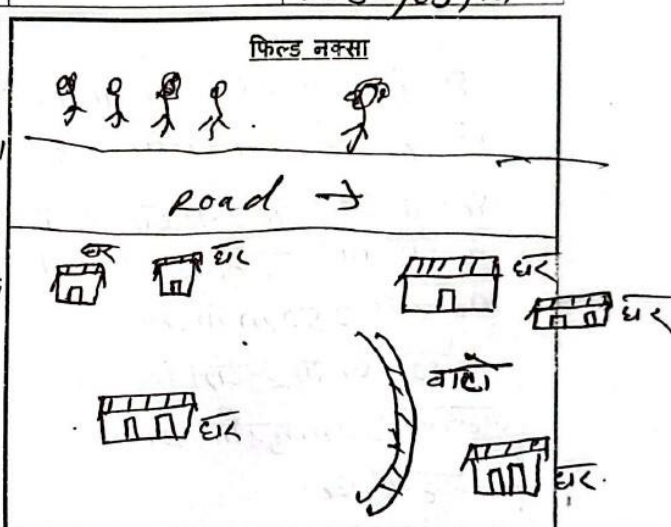 फिल्ड नक्सा
Road →
घर
घर
घर
घर
बाटो
घर
घर.